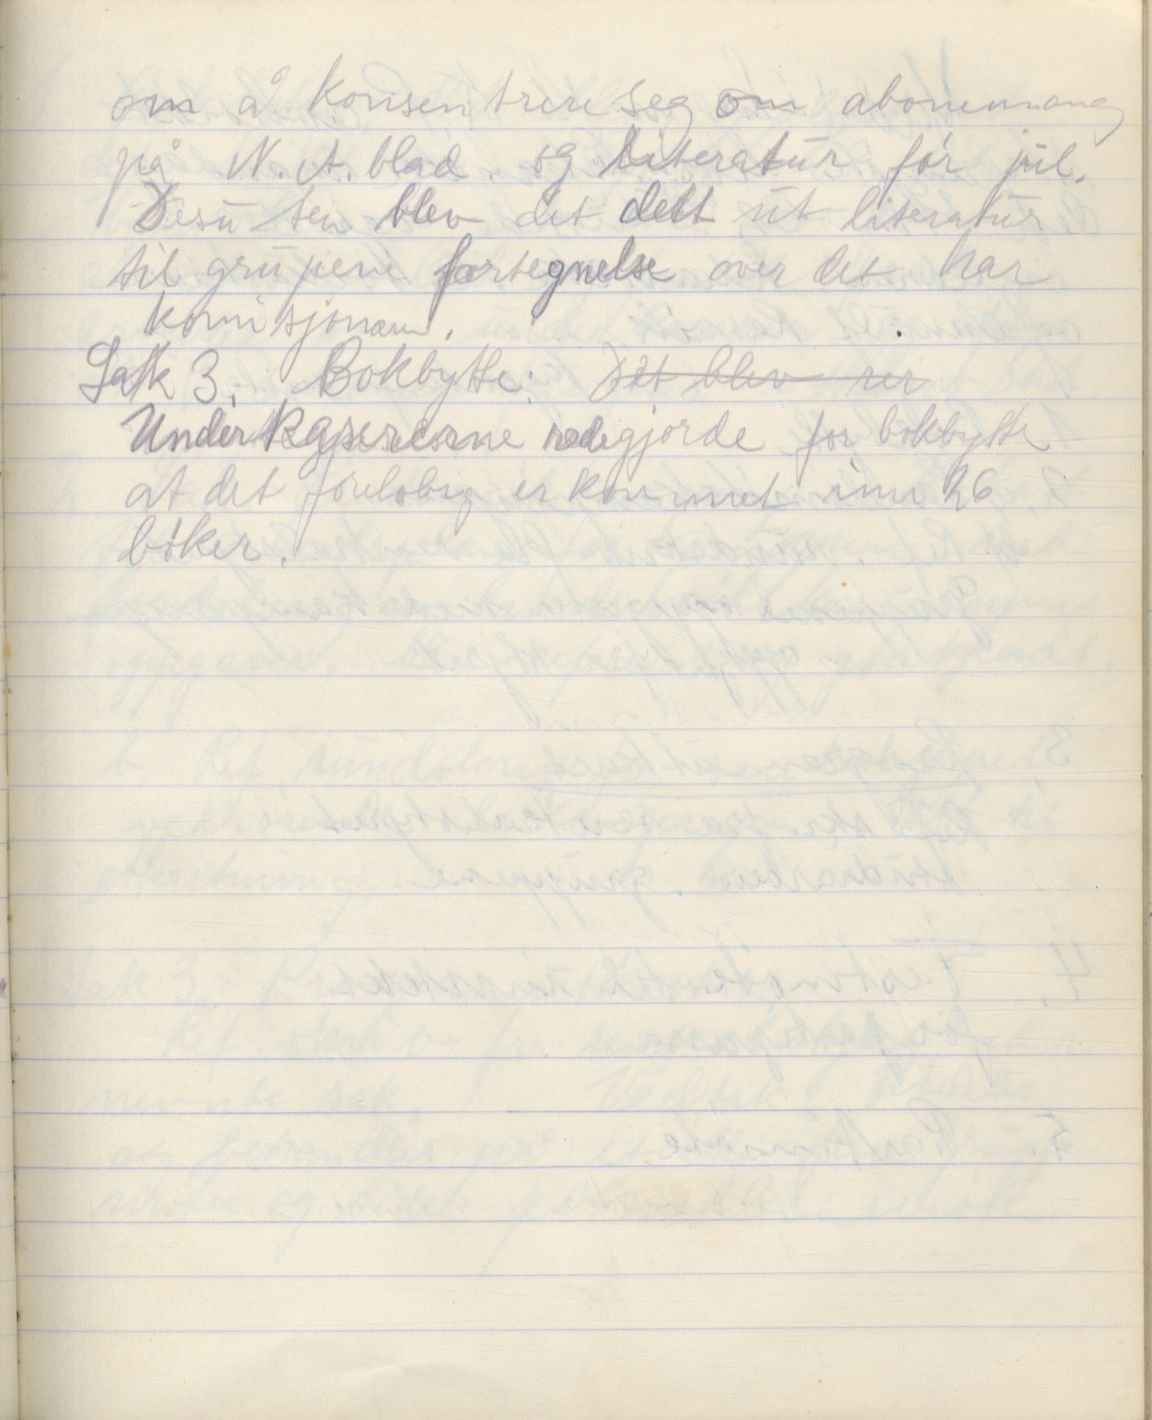 om å konsentrere seg om abonemang
på N. A. blad. og literatur før jul.
Desuten blev det delt ut literatur
til grupene førtegnelse over det har
komisjonæren.
Sak 3. Bokbytte: Det blev rer
Under kasererne redegjorde for bokbytte
at det foreløbig er kommet inn 26
bøker.